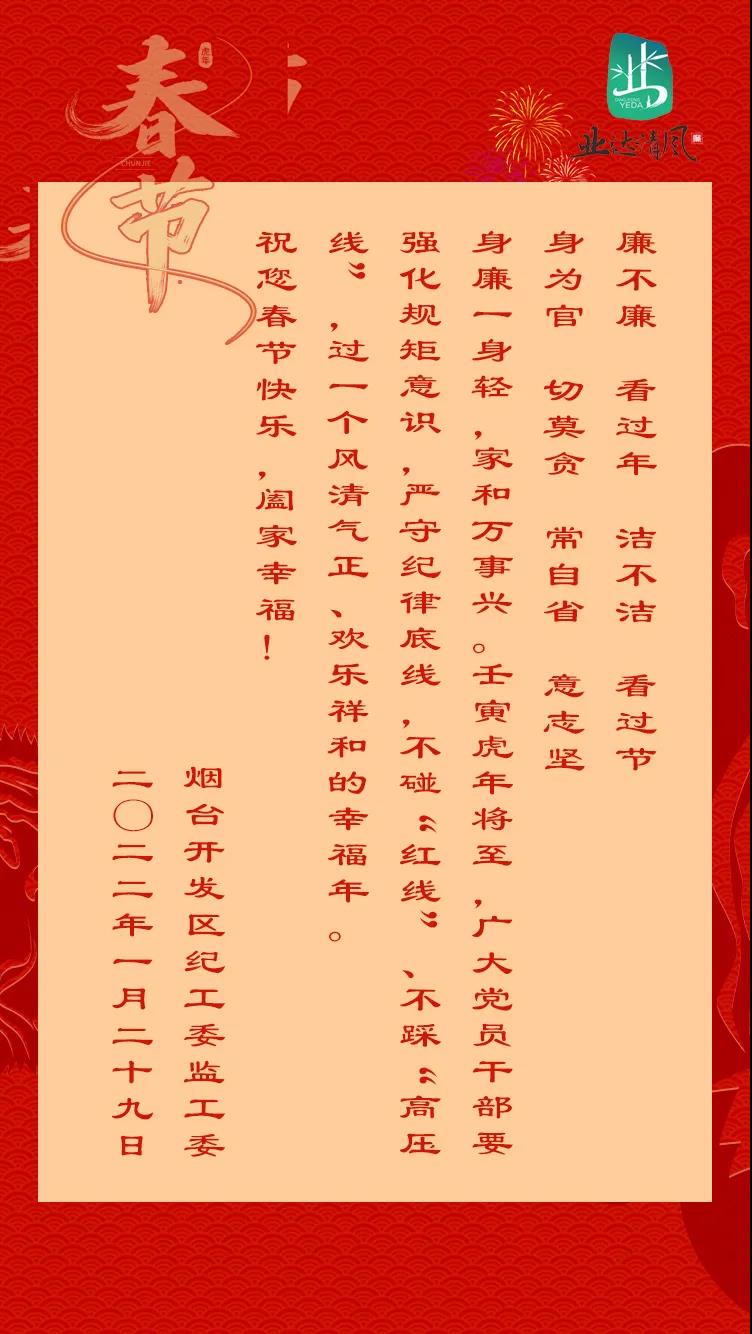 春节
虎年
CHUNJIE
YEDA
业达清风
廉不廉 看过年 洁不洁 看过节
身为官 切莫贪 常自省 意志坚
身廉一身轻，家和万事兴。壬寅虎年将至，广大党员干部要
强化规矩意识，严守纪律底线，不碰“红线”、不踩“高压
线”，过一个风清气正、欢乐祥和的幸福年。
祝您春节快乐，阖家幸福！
烟台开发区纪工委监工委
二〇二二年一月二十九日